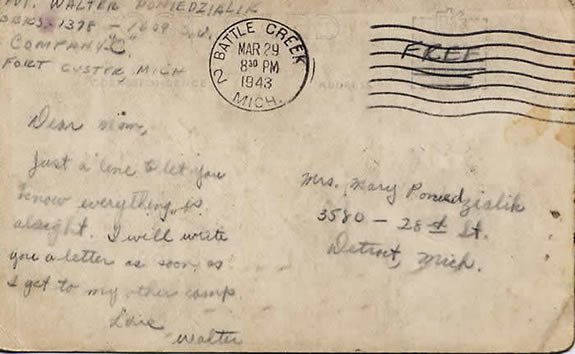 PVT. WALTER PONIEDZIALIK
BRKS. 1378 - 1609 S.U.
COMPANY "C"
FORT CUSTER MICH
2 BATTLE CREEK
MAR 29
8 30 PM
1943
MICH.
FREE
CORRESPONDENCE
ADDRESS
Dear Mom,
Just a line to let you
know everything is
alright. I will write
you a letter as soon as
I get to my other camp.
Love
Walter
Mrs. Mary Poniedzialik
3580 - 28th St.
Detroit, Mich.